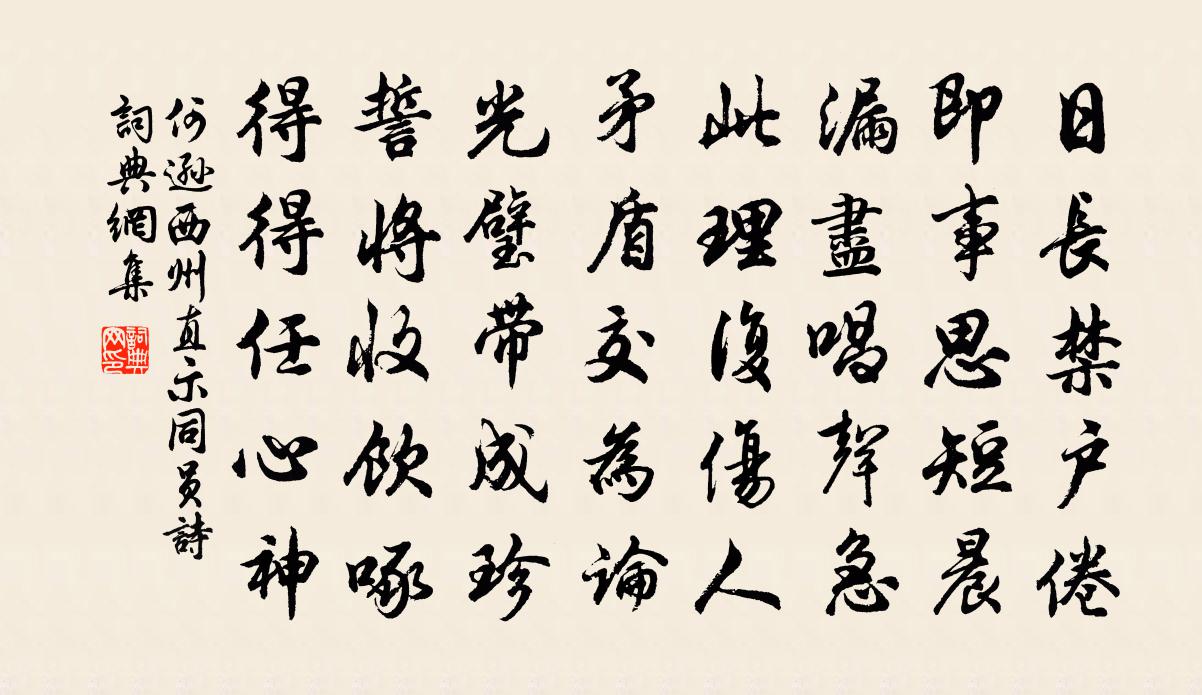 日長禁户倦
即事思短晨
漏盡唱聲急
此理復傷人
矛盾交為論
光璧帶成珍
誓將收飲啄
得得任心神
何遜西州直示同員詩
詞典網集
詞典網印